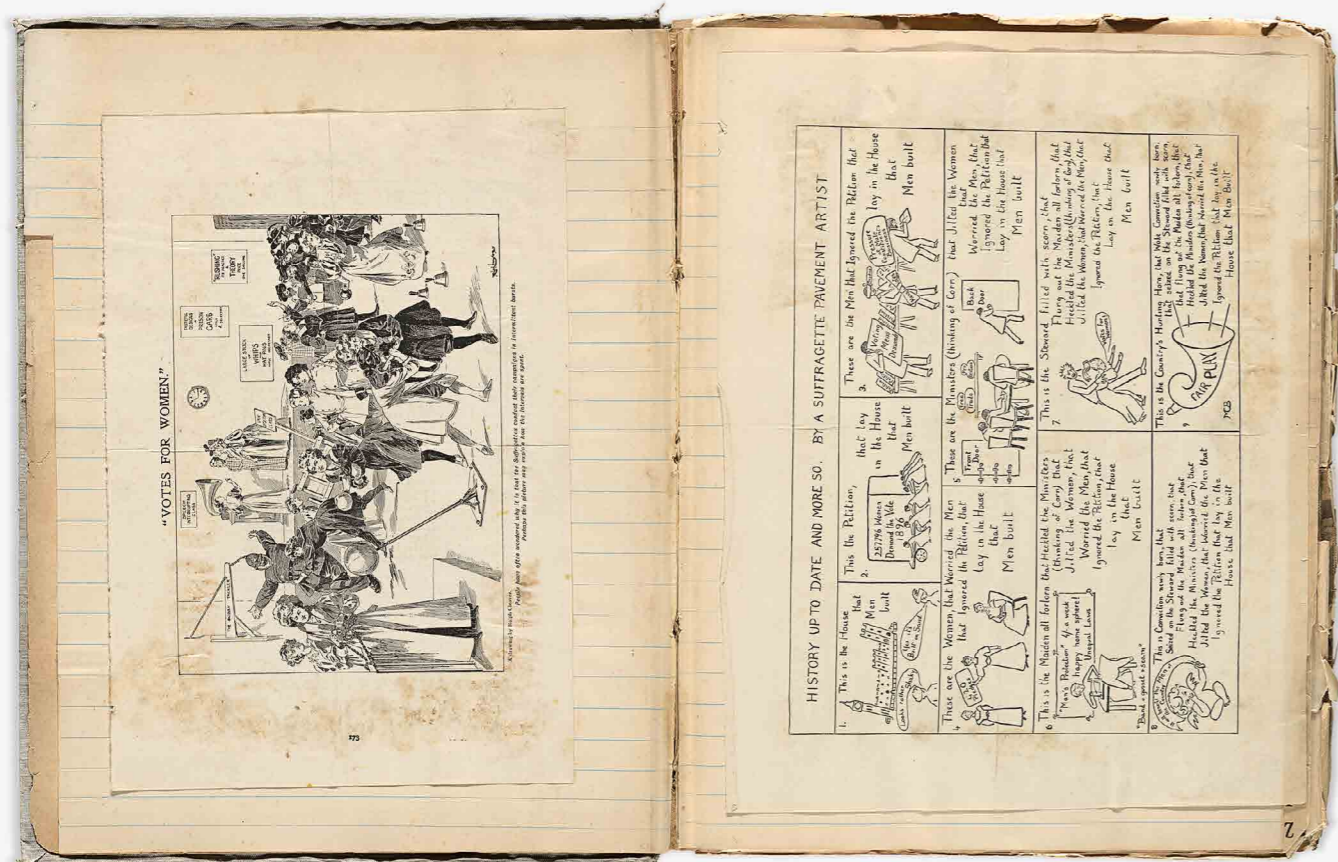 "VOTES FOR WOMEN."
SPEAKER
INTERRUPTING
CLASS
LARGE STOCK
OF
WHIPS
"RUSHING"
THEORY
PRISON
GARB
A drawing by Ralph Cleaver.
People have often wondered why it is that the Suffragettes conduct their campaigns in intermittent bursts.
Perhaps this picture may explain how the intervals are spent.
173
HISTORY UP TO DATE AND MORE SO. BY A SUFFRAGETTE PAVEMENT ARTIST
1. This is the House
that
Men
built
Looks rather
Shaky
2. This the Petition,
that lay
in the House
that
Men built
257796 Women
Demand the Vote
1896
3. These are the Men that Ignored the Petition that
lay in the House
that
Men built
Voting
Men
4 These are the Women, that Worried the Men
that Ignored the Petition, that
Lay in the House
that
Men built
5 These are the Ministers (thinking of Corn) that Jilted the Women
that
Worried the Men, that
Ignored the Petition that
Lay in the House that
Men built
Front
Door
Back
Door
6 This is the Maiden all forlorn that Heckled the Ministers
(thinking of Corn) that
Jilted the Women, that
Worried the Men, that
Ignored the Petition, that
lay in the House
that
Men built
"Man's Protection"
happy home sphere!
Unequal Laws
"Band & gusset & seam"
7 This is the Steward filled with scorn, that
Flung out the Maiden all forlorn, that
Heckled the Ministers (thinking of Corn), that
Jilted the Women, that Worried the Men, that
Ignored the Petition, that
Lay in the House that
Men built
Votes for
Women
8 This is Conviction newly born, that
Seized on the Steward filled with scorn, that
Flung out the Maiden all forlorn, that
Heckled the Ministers (thinking of Corn), that
Jilted the Women, that Worried the Men that
Ignored the Petition, that lay in the
House that Men built
9 This is the Country's Hunting Horn, that Woke Conviction newly born,
that seized on the Steward filled with scorn,
that flung out the Maiden all forlorn, that
Heckled the Ministers (thinking of corn), that
Jilted the Women, that Worried the Men, that
Ignored the Petition that lay in the
House that Men Built
FAIR PLAY
MCB
7